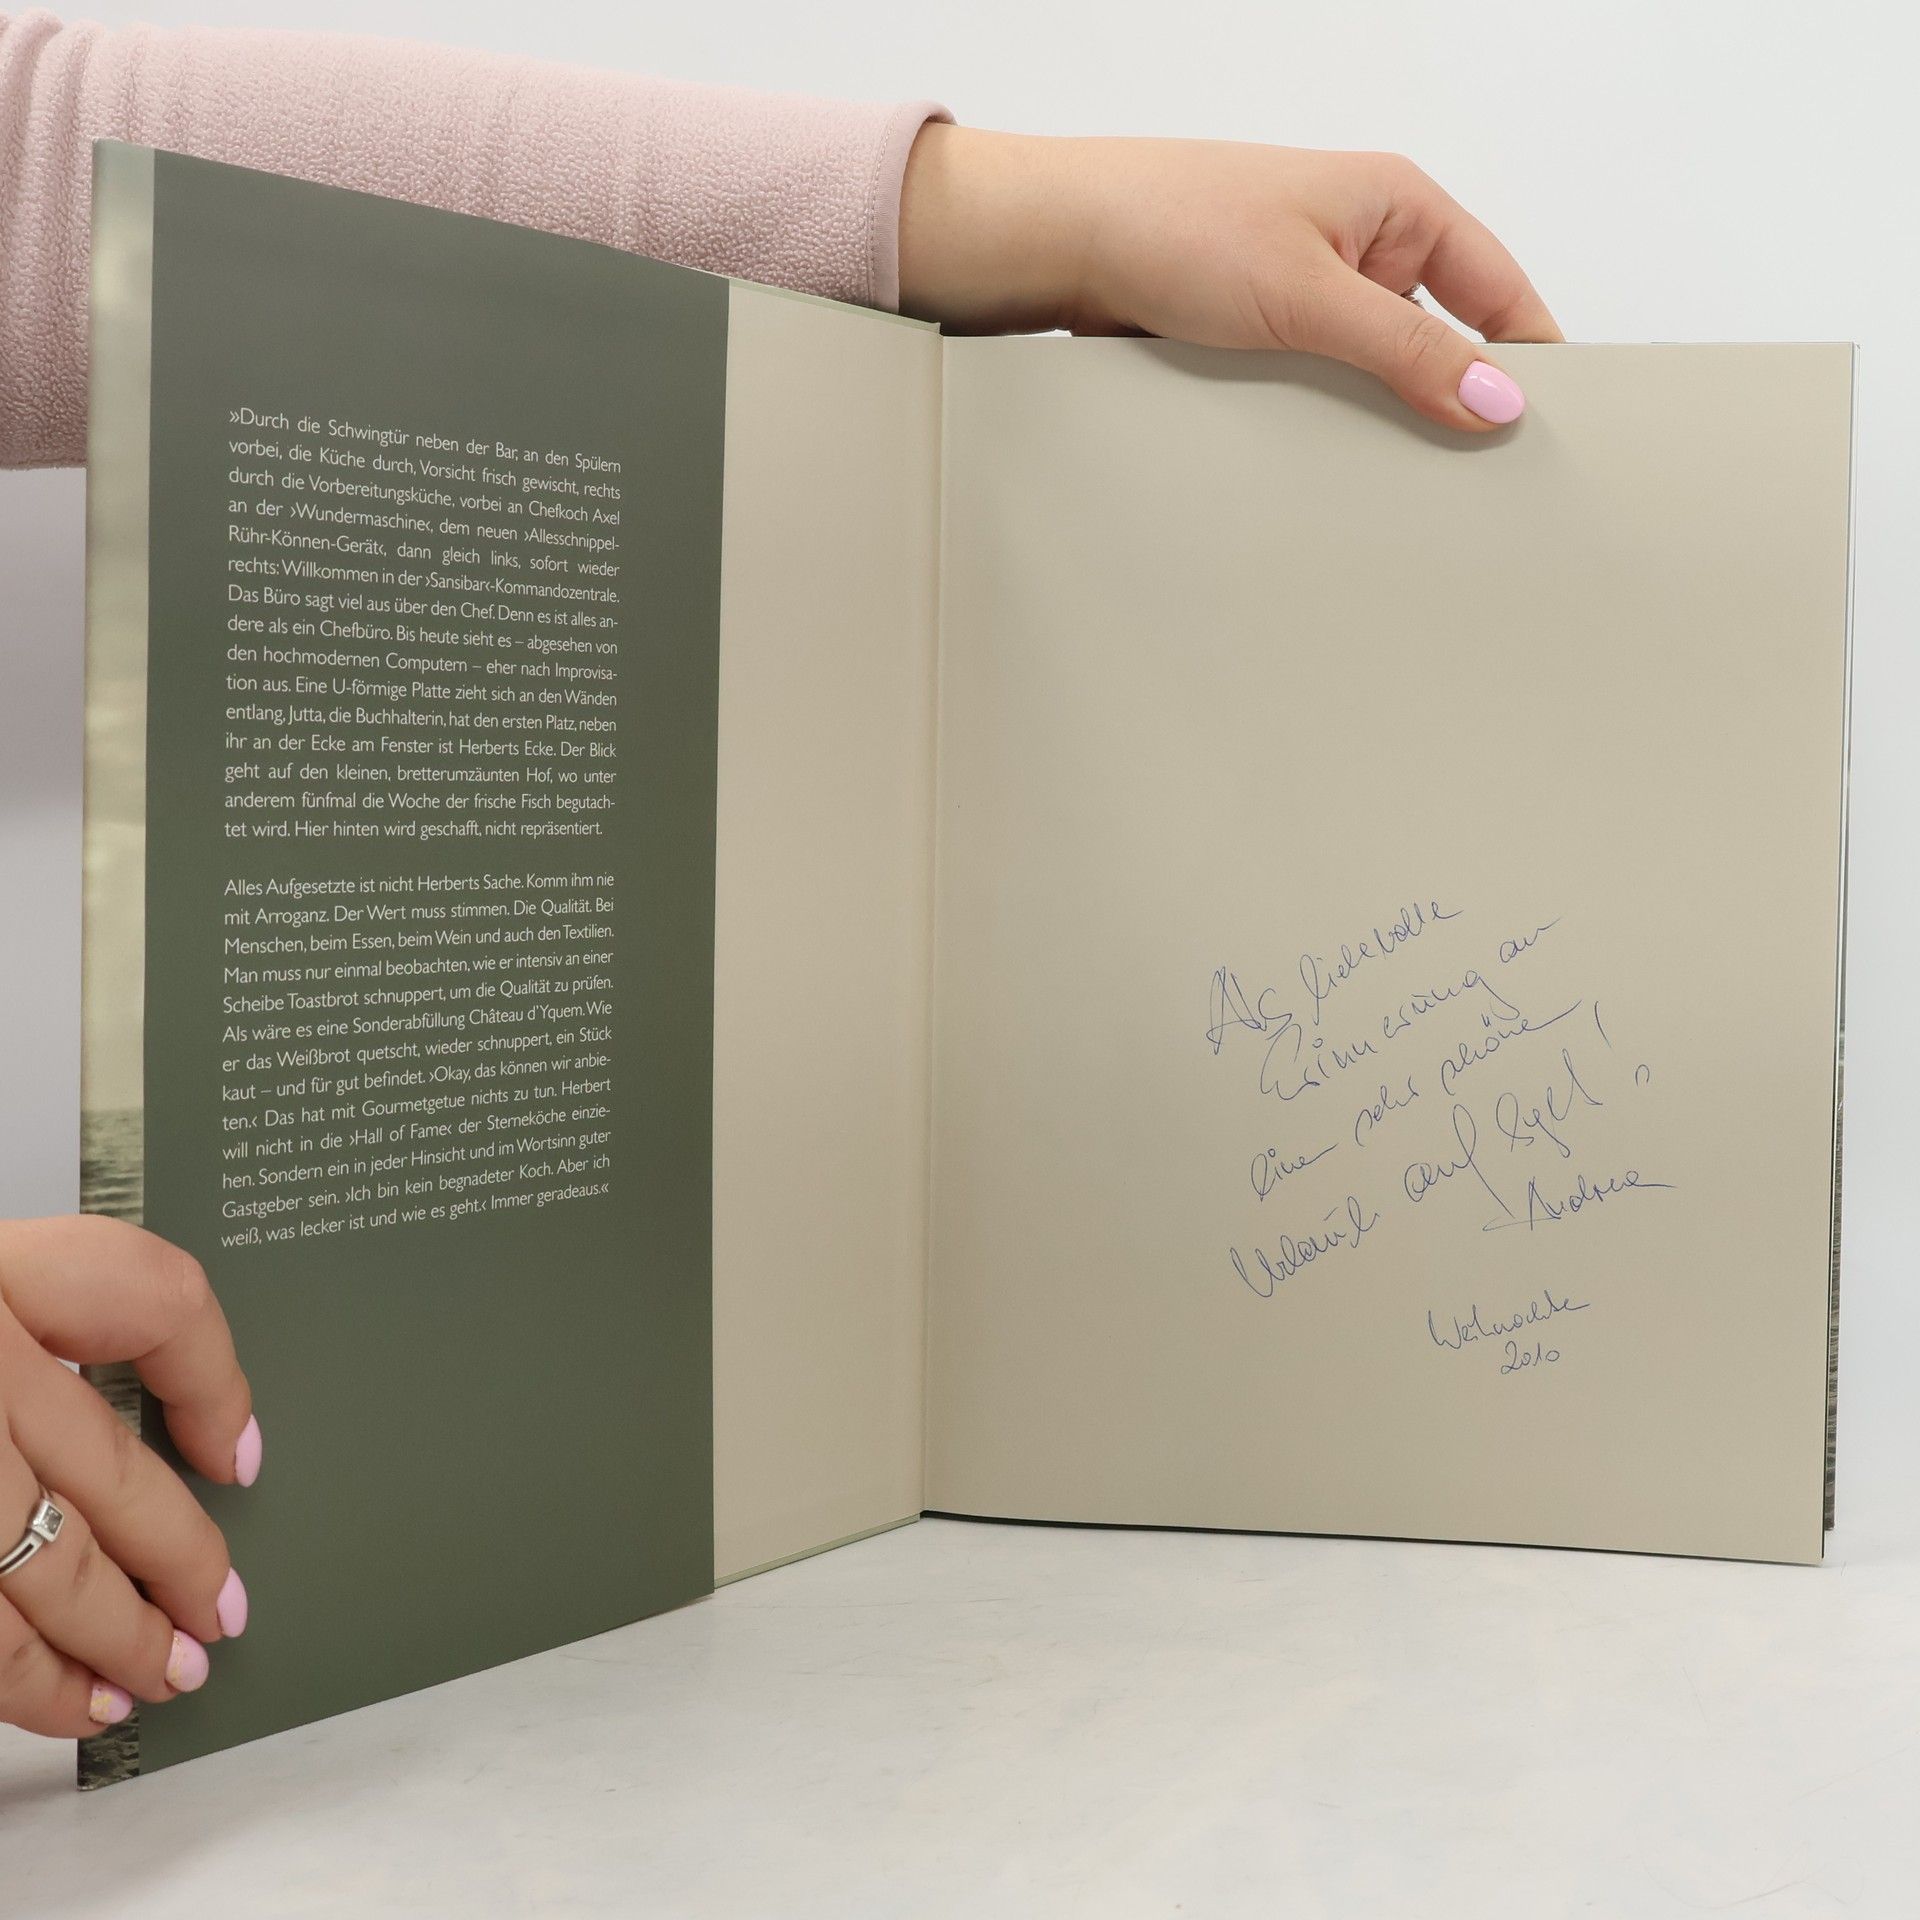 »Durch die Schwingtür neben der Bar, an den Spülern
vorbei, die Küche durch, Vorsicht frisch gewischt, rechts
durch die Vorbereitungsküche, vorbei an Chefkoch Axel
an der ›Wundermaschine‹, dem neuen ›Allesschnippel-
Rühr-Können-Gerät‹, dann gleich links, sofort wieder
rechts: Willkommen in der ›Sansibar‹-Kommandozentrale.
Das Büro sagt viel aus über den Chef. Denn es ist alles an-
dere als ein Chefbüro. Bis heute sieht es – abgesehen von
den hochmodernen Computern – eher nach Improvisa-
tion aus. Eine U-förmige Platte zieht sich an den Wänden
entlang, Jutta, die Buchhalterin, hat den ersten Platz, neben
ihr an der Ecke am Fenster ist Herberts Ecke. Der Blick
geht auf den kleinen, bretterumzäunten Hof, wo unter
anderem fünfmal die Woche der frische Fisch begutach-
tet wird. Hier hinten wird geschafft, nicht repräsentiert.
Alles Aufgesetzte ist nicht Herberts Sache. Komm ihm nie
mit Arroganz. Der Wert muss stimmen. Die Qualität. Bei
Menschen, beim Essen, beim Wein und auch den Textilien.
Man muss nur einmal beobachten, wie er intensiv an einer
Scheibe Toastbrot schnuppert, um die Qualität zu prüfen.
Als wäre es eine Sonderabfüllung Château d'Yquem. Wie
er das Weißbrot quetscht, wieder schnuppert, ein Stück
kaut – und für gut befindet. ›Okay, das können wir anbie-
ten.‹ Das hat mit Gourmetgetue nichts zu tun. Herbert
will nicht in die ›Hall of Fame‹ der Sterneköche einzie-
hen. Sondern ein in jeder Hinsicht und im Wortsinn guter
Gastgeber sein. ›Ich bin kein begnadeter Koch. Aber ich
weiß, was lecker ist und wie es geht.‹ Immer geradeaus.«
Als liebevolle
Erinnerung an
einen sehr schönen
Urlaub auf Sylt!
Andrea
Weihnachten
2010